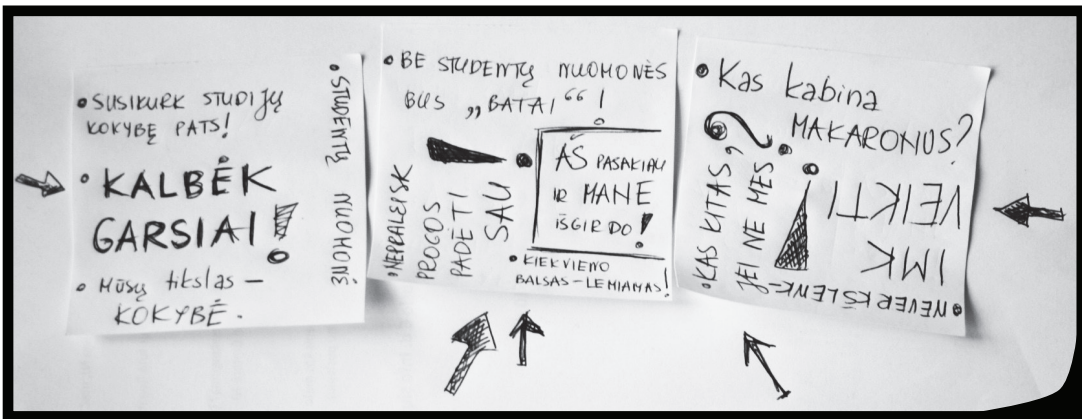 • SUSIKURK STUDIJŲ
KOKYBĘ PATS!
• KALBĖK
GARSIAI!
• MŪSŲ tikslas –
KOKYBĖ.
• STUDENTŲ NUOMONĖ
• BE STUDENTŲ NUOMONĖS
BUS „BATAI“!
• NEPRALEISK
PROGOS
PADĖTI
SAU!
AŠ PASAKIAU
IR MANE
IŠGIRDO!
• KIEKVIENO
BALSAS – LEMIAMAS!
• Kas kabina
MAKARONUS?
• KAS KITAS,
JEI NE MES?
• NEVERKŠLENK –
IMK
VEIKTI!